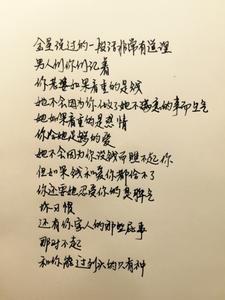 金星说过的一段话非常有道理
男人们你们记着
你老婆如果看重的是钱
她不会因为你做了她不满意的事而生气
她如果看重的是感情
你给她足够的爱
她不会因为你没钱而瞧不起你
但如果钱和爱你都给不了
你还要她忍受你的臭脾气
坏习惯
还有你家人的那些屁事
那对不起
和你能过到头的只有神